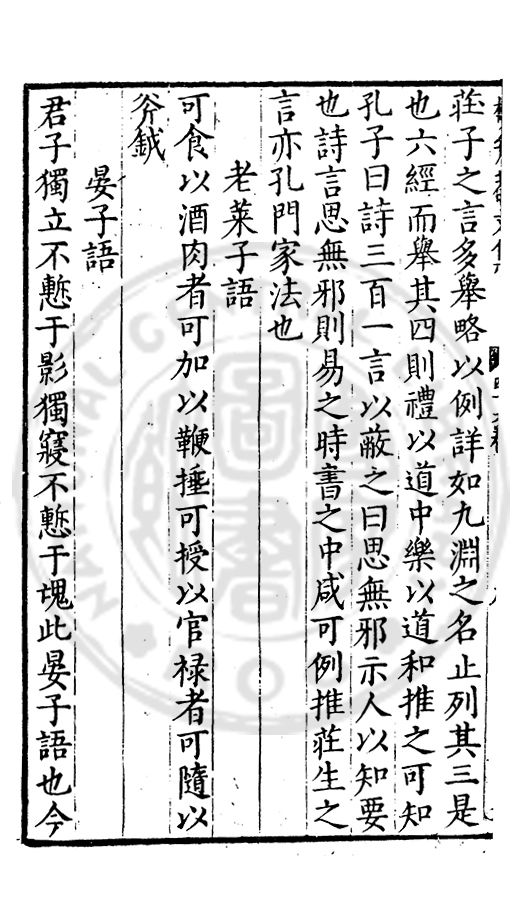 莊子之言多舉略以例詳如九淵之名止列其三是
也六經而舉其四則禮以道中樂以道和推之可知
孔子曰詩三百一言以蔽之曰思無邪示人以知要
也詩言思無邪則易之時書之中咸可例推莊生之
言亦孔門家法也
老莱子語
可食以酒肉者可加以鞭捶可授以官禄者可隨以
斧鉞
晏子語
君子獨立不慙于影獨寢不慙于塊此晏子語也今